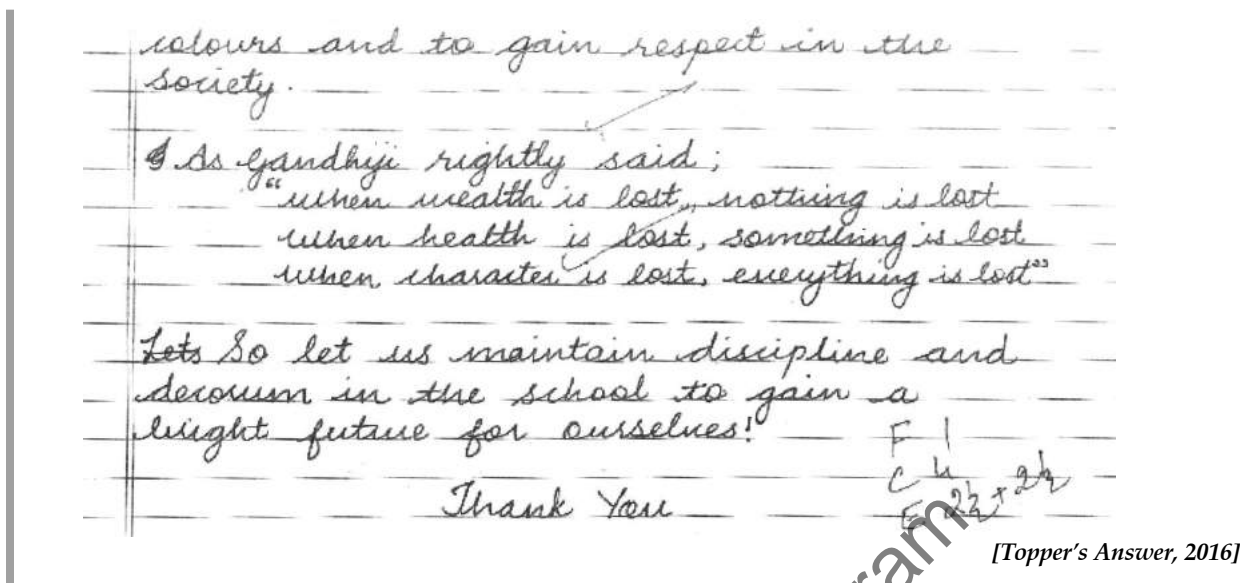 colours and to gain respect in the
society.
As Gandhiji rightly said;
"when wealth is lost, nothing is lost
when health is lost, something is lost
when character is lost, everything is lost"
Lets So let us maintain discipline and
decorum in the school to gain a
bright future for ourselves!
Thank You
F 1
C 4
E 2½ + 2½
[Topper's Answer, 2016]